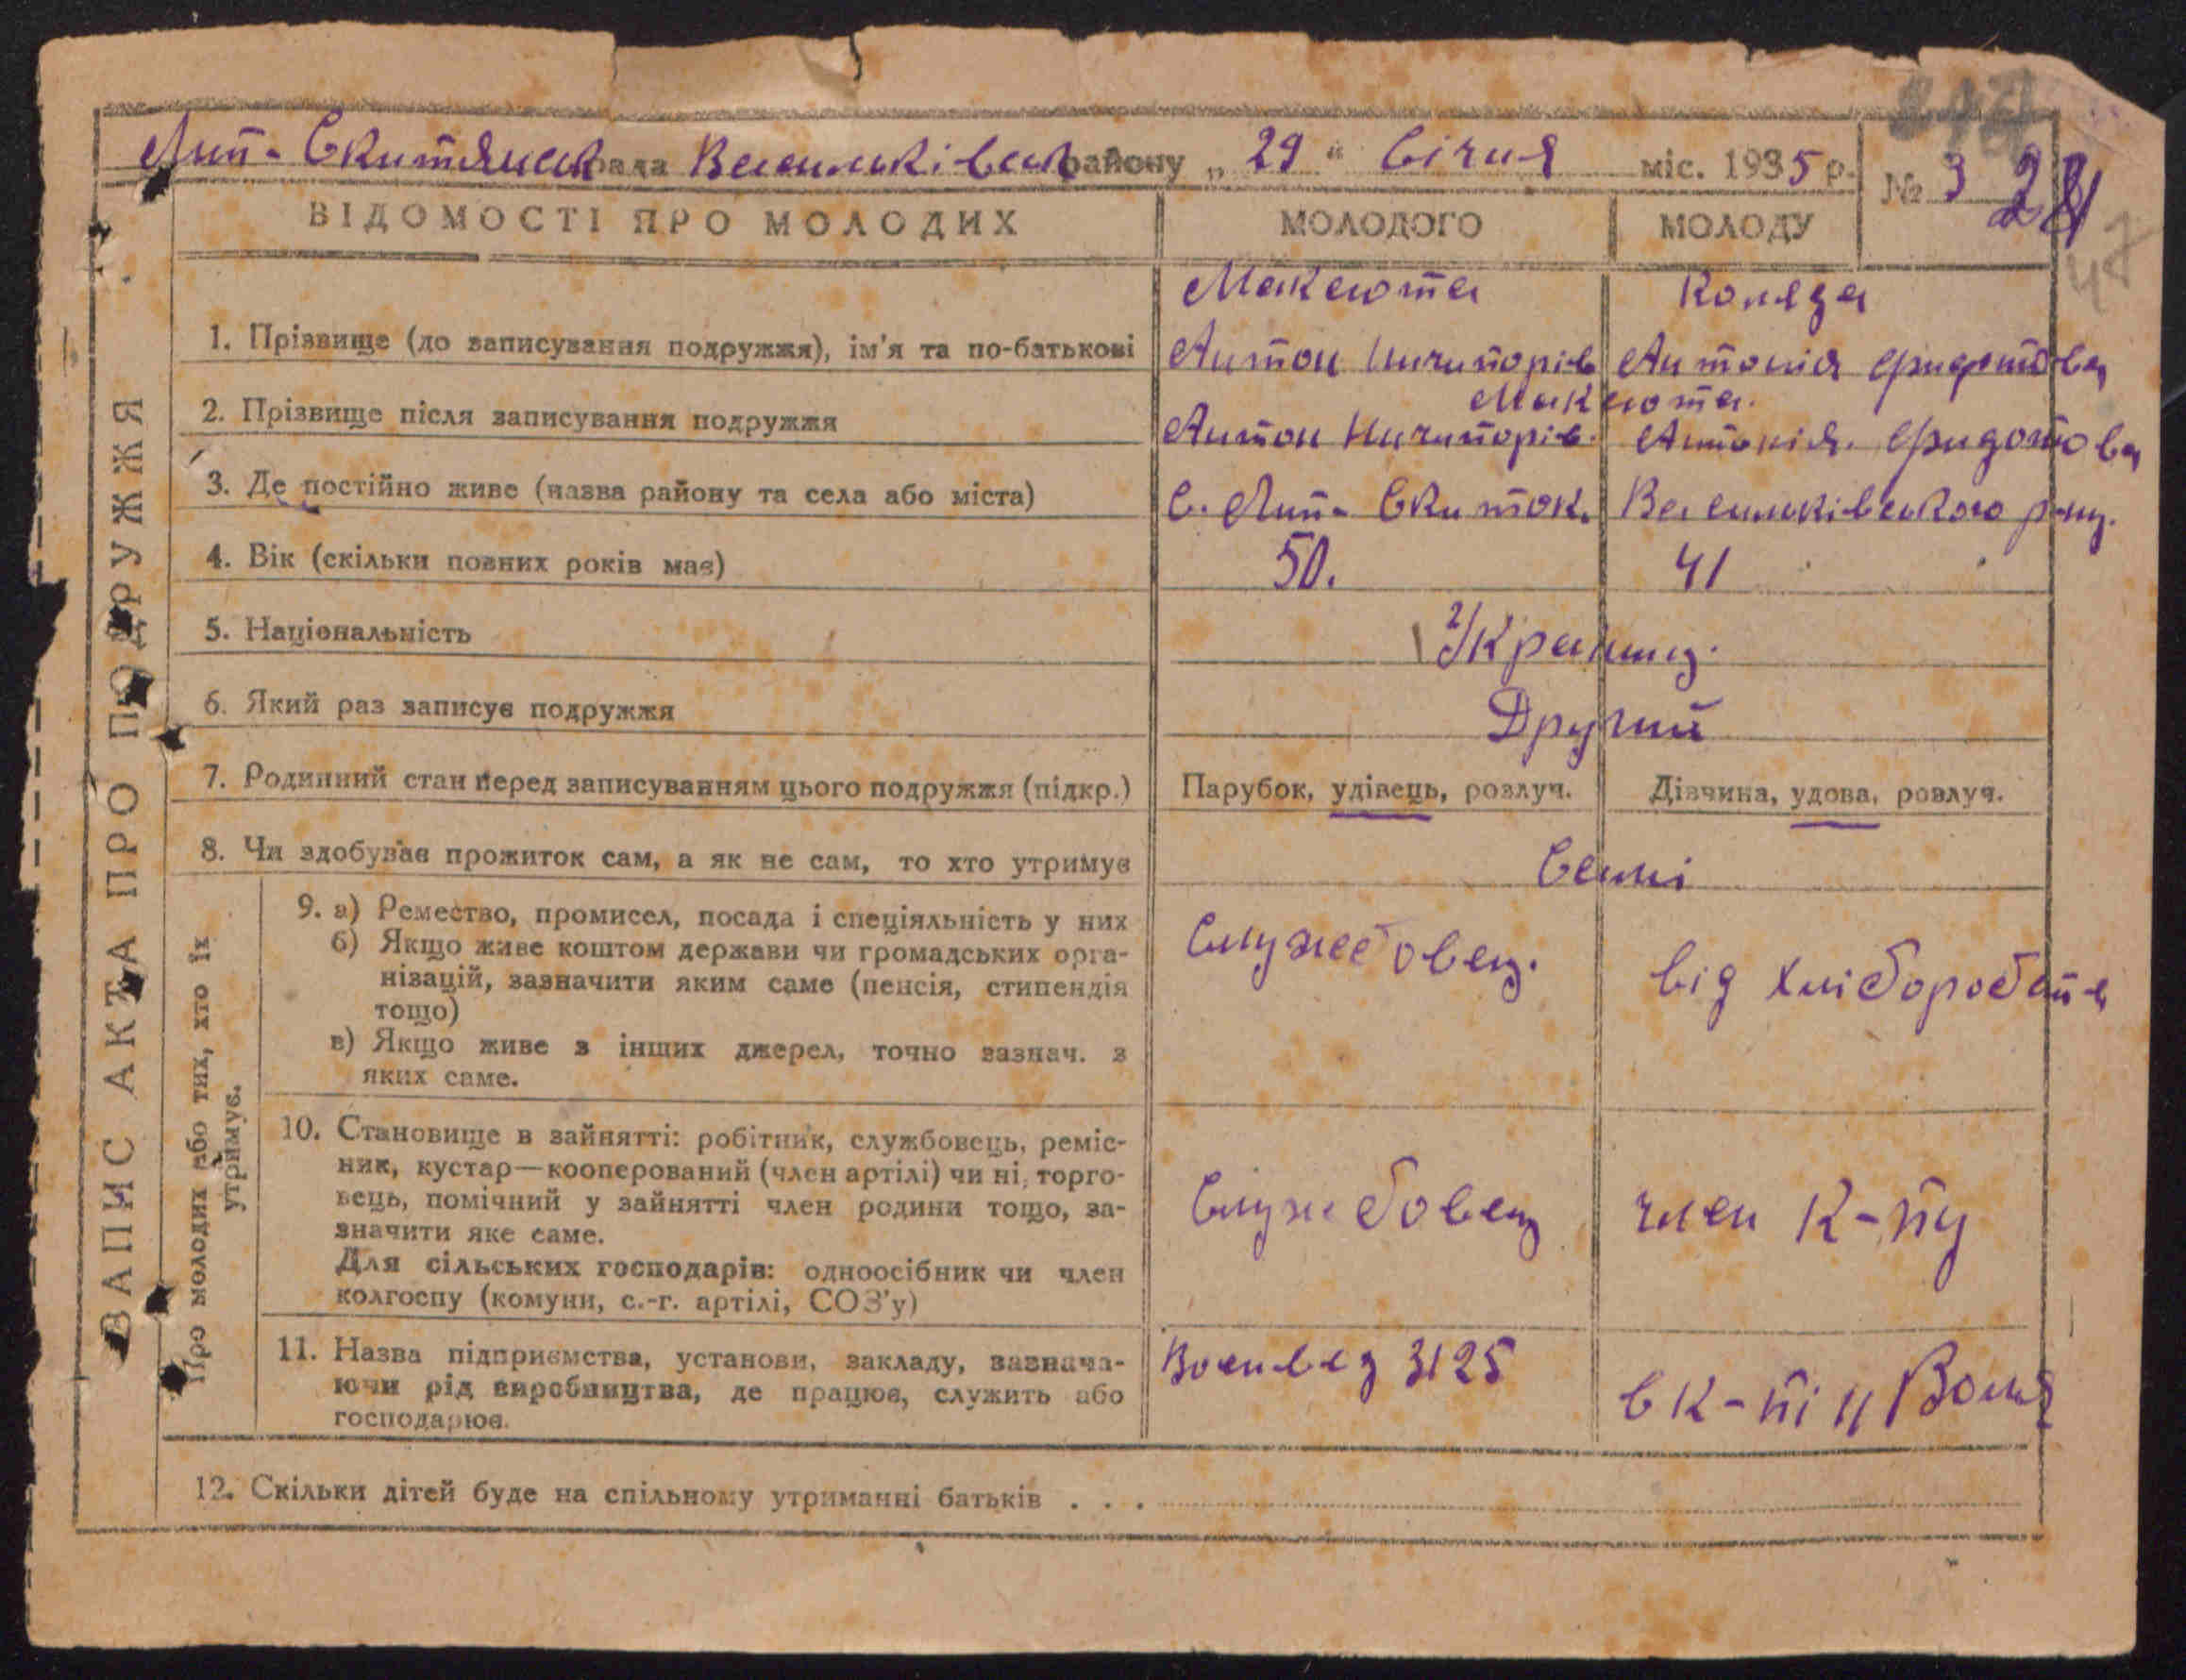 Лип-Скитянск рада Васильківськ району „29“ Січня міс. 1935 р.
№ 3
ВІДОМОСТІ ПРО МОЛОДИХ МОЛОДОГО МОЛОДУ
ЗАПИС АКТА ПРО ПОДРУЖЖЯ
Макаюта Коляда
1. Прізвище (до записування подружжя), ім'я та по-батькові Антон Ничипорів Антонія Федотова
Макаюта.
2. Прізвище після записування подружжя Антон Ничипорів. Антонія. Федотова
3. Де постійно живе (назва району та села або міста) С. Лип-Скиток. Васильківського р-ну.
4. Вік (скільки повних років має) 50. 41
5. Національність Україниц.
6. Який раз записує подружжя Другий
7. Родинний стан перед записуванням цього подружжя (підкр.) Парубок, удівець, розлуч. Дівчина, удова, розлуч.
8. Чи здобуває прожиток сам, а як не сам, то хто утримує Самі
Про молодих або тих, хто їх
утримує.
9. а) Ремество, промисел, посада і спеціяльність у них Службовец.
б) Якщо живе коштом держави чи громадських орга-
нізацій, зазначити яким саме (пенсія, стипендія від хліборобст-в
тощо)
в) Якщо живе з інших джерел, точно зазнач. з
яких саме.
10. Становище в зайнятті: робітник, службовець, реміс-
ник, кустар—кооперований (член артілі) чи ні, торго-
вець, помічний у зайнятті член родини тощо, за- Службовец член К-пу
значити яке саме.
Для сільських господарів: одноосібник чи член
колгоспу (комуни, с.-г. артілі, СОЗ'у)
11. Назва підприємства, установи, закладу, зазнача- Военвед 3125
ючи рід виробництва, де працює, служить або в К-пі „Воля
господарює.
12. Скільки дітей буде на спільному утриманні батьків . . .